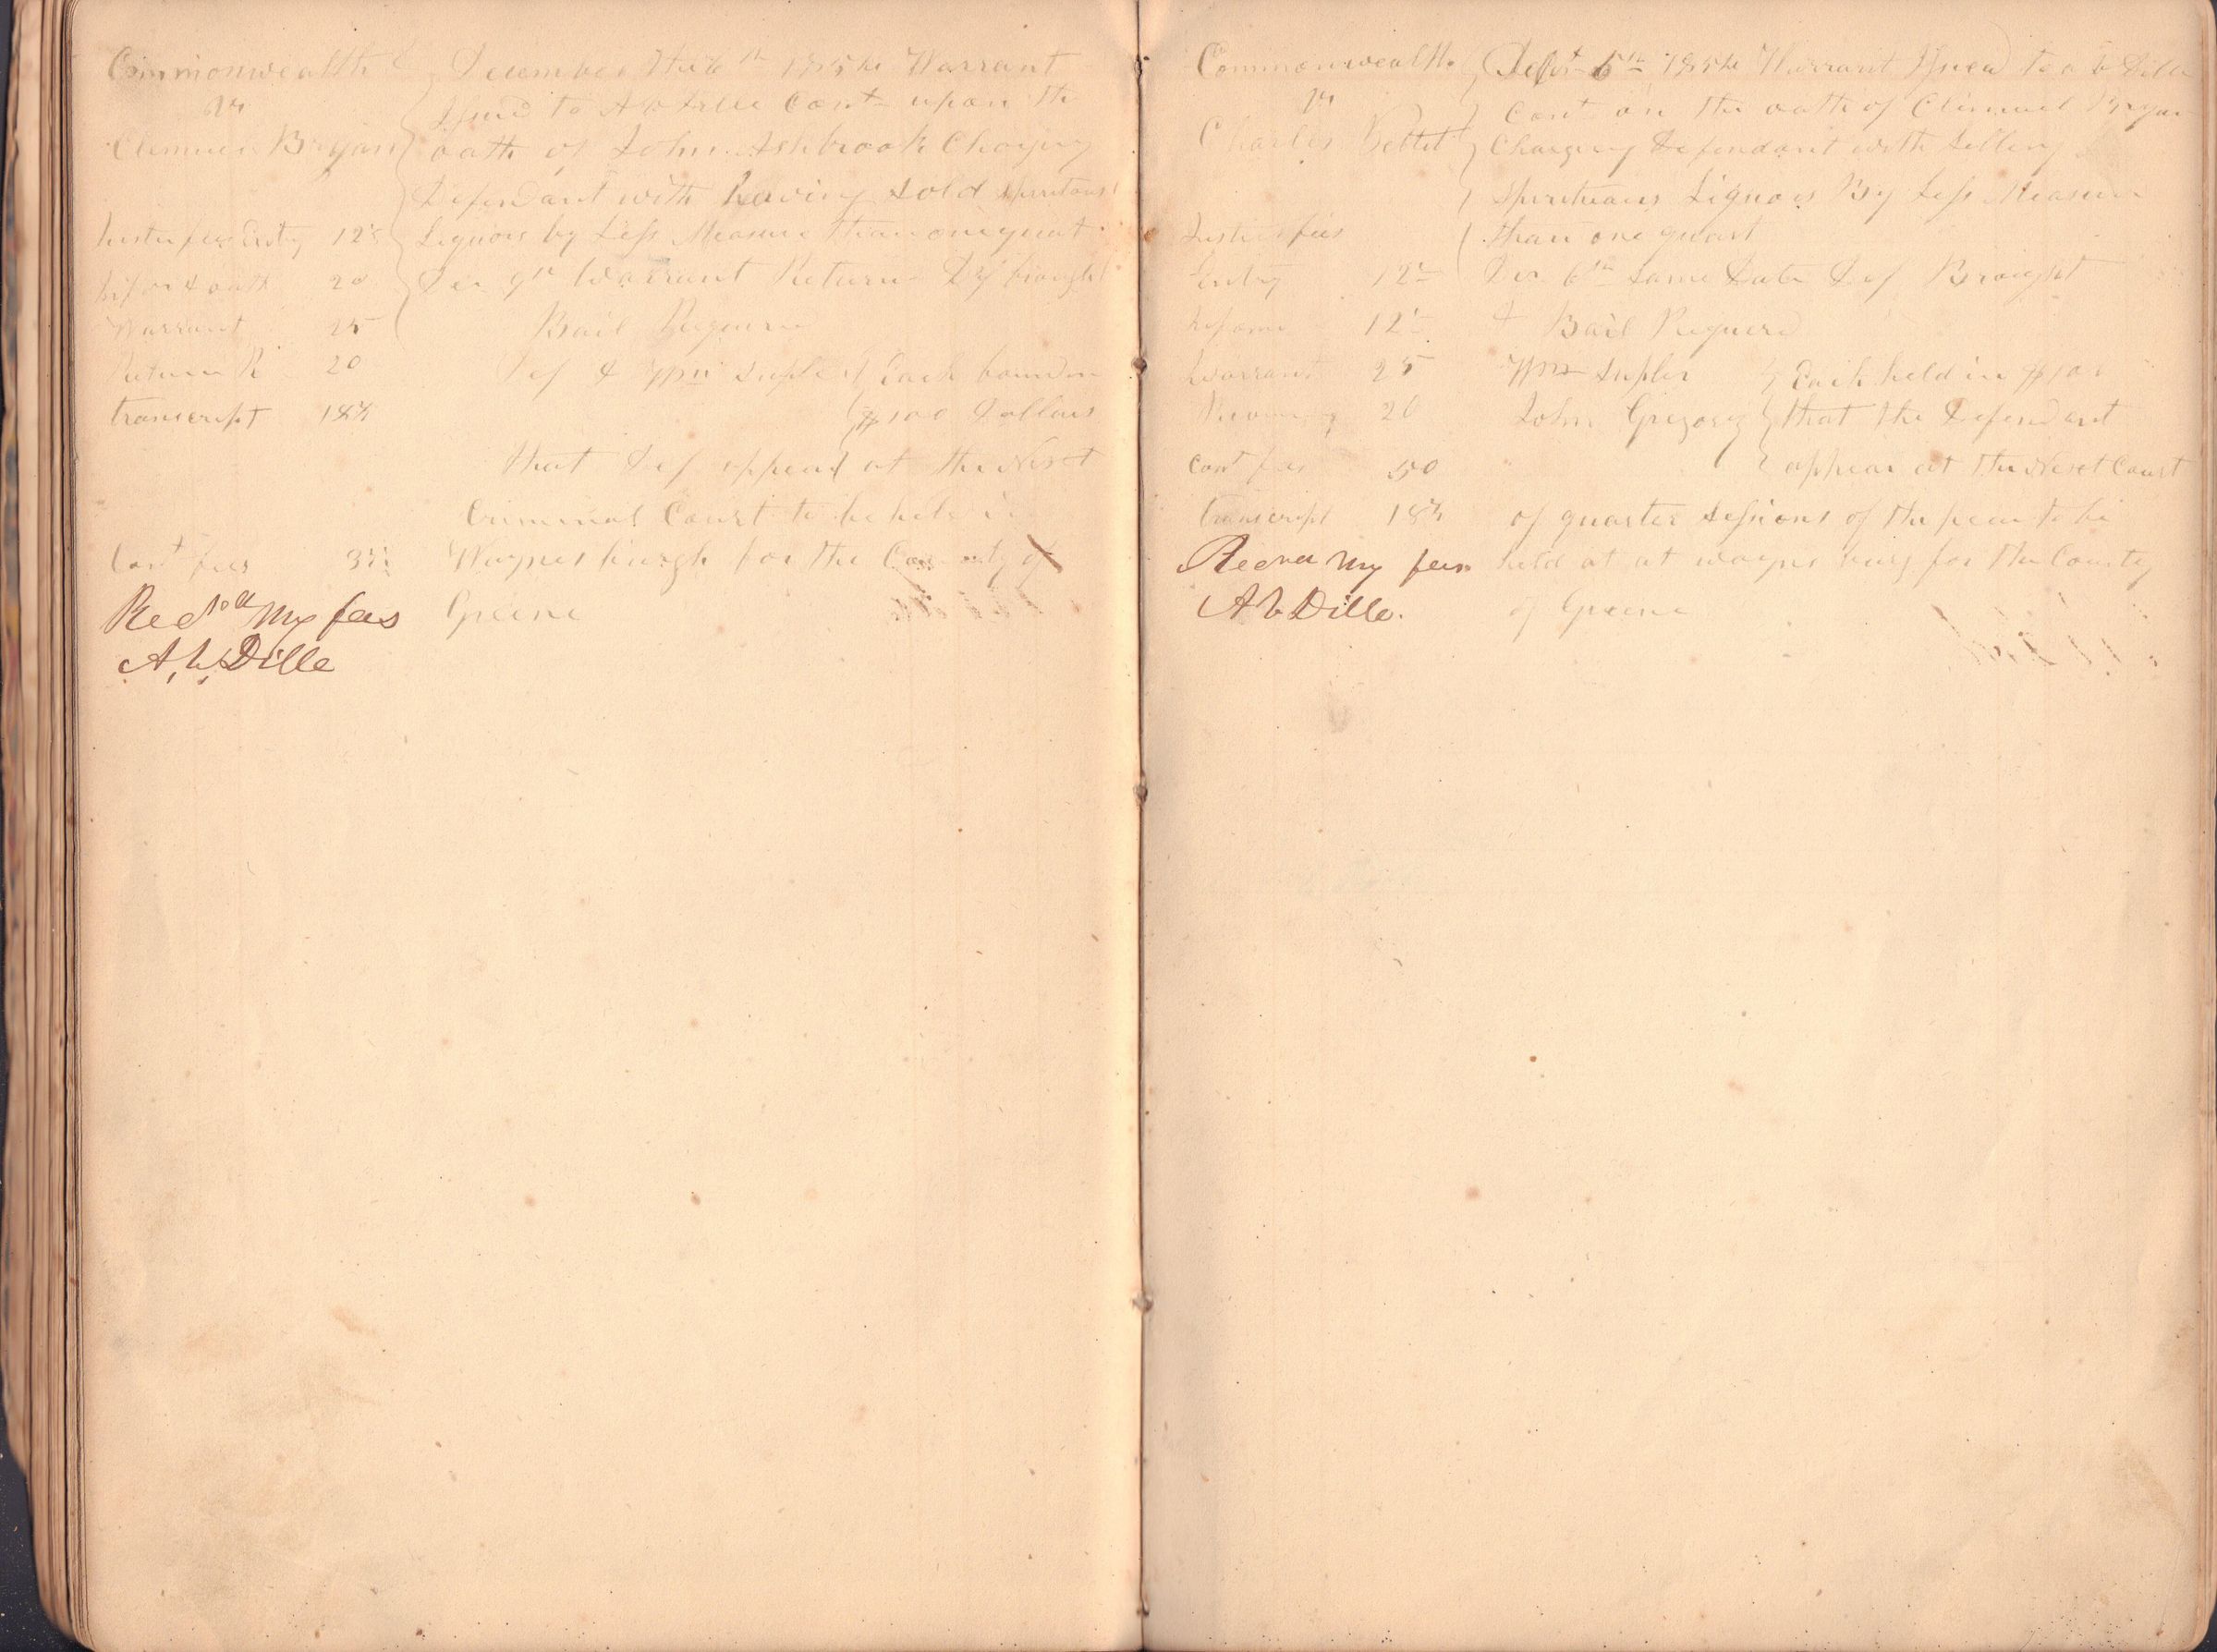 Commonwealth
vs
Clemuel Bryan
December the 6th 1854 Warrant
Issued to A b Dille Const upon the
oath of John Ashbrook Charging
Defendant with having Sold Spiritous
Liquors by Less Measure than one quart
Dec 9th Warrant Return Def brought
Bail Required
Def & Wm Supler Each bound in
$100 Dollars
that Def appear at the Next
Criminal Court to be held in
Waynesburgh for the County of
Greene
Justis fees Entry 12½
Infor & oath 20
Warrant 25
Return R 20
transcript 18¾
Const fees
Recvd My fees
A, b, Dille
Commonwealth
vs
Charles
Sept 6th 1854 Warrant Issued to a b Dille
Const on the oath of Clemuel Bryan
Charging Defendant with Selling
Spirituous Liquors By Less Measure
than one quart
Dec 6th Same Date Def Braight
& Bail Requerd
Wm Supler
John Gregory
Each held in $100
that the Defendant
appear at the Next Court
of quarter Sessions of the peace to be
held at at waynesburg for the County
of Greene
Justis fees
Entry 12½
Inform 12½
Warrant 25
20
Const fees 50
transcript 18¾
Recvd My fees
A b Dille.